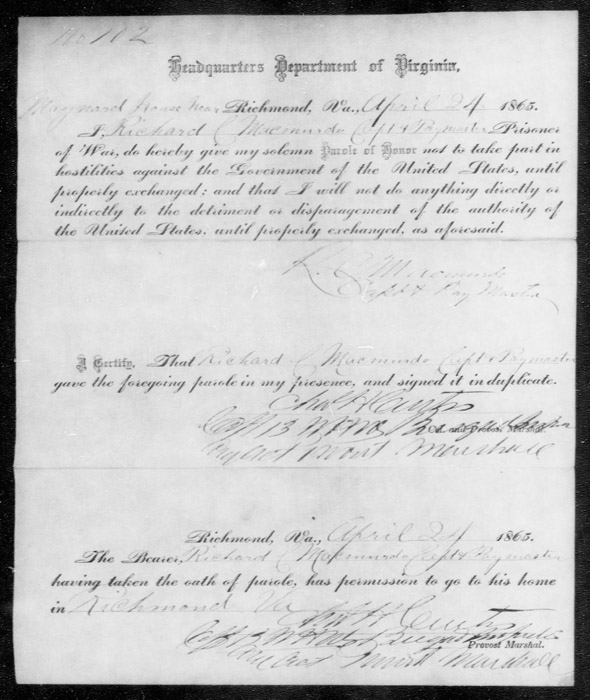 No 102
Headquarters Department of Virginia,
Maynard House near Richmond, Va., April 24 1865.
I, Richard C Macmurdo Capt & Paymaster Prisoner
of War, do hereby give my solemn Parole of Honor not to take part in
hostilities against the Government of the United States, until
properly exchanged; and that I will not do anything directly or
indirectly to the detriment or disparagement of the authority of
the United States, until properly exchanged, as aforesaid.
R. C. Macmurdo
Capt & Pay Master
I Certify, That Richard C Macmurdo Capt & Paymaster
gave the foregoing parole in my presence, and signed it in duplicate.
Chas H Curtis
Capt 13
Col. and Provost Marshal.
Provost Marshall
Richmond, Va., April 24 1865.
The Bearer, Richard C Macmurdo Capt & Paymaster
having taken the oath of parole, has permission to go to his home
in Richmond Va
Chas H Curtis
Capt 13
Provost Marshal.
Provost Marshall